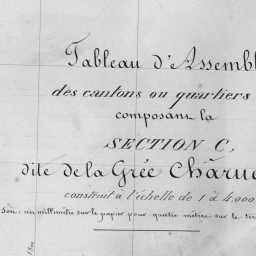 Tableau d'Assembl
des cantons ou quartiers
composant la
SECTION C,
dite de la Grée Charu
construit à l'échelle de 1 à 4.000
Soit un millimètre sur le papier pour quatre mètres sur le ter